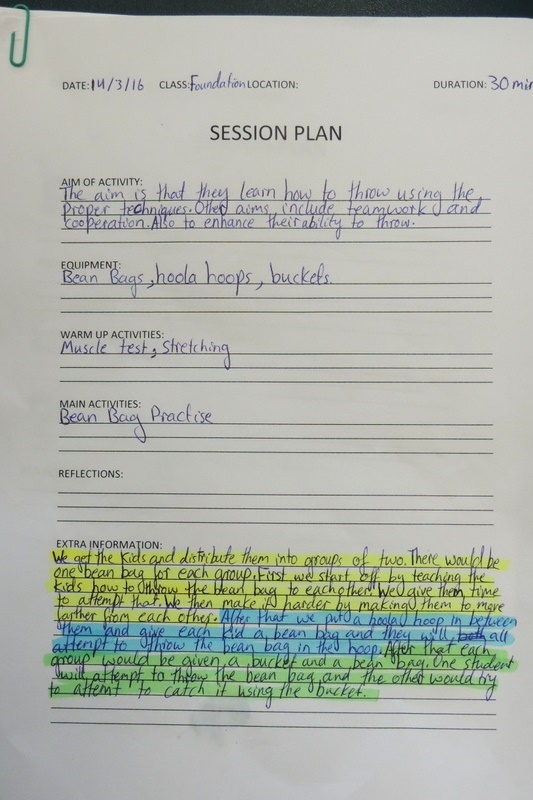 DATE: 14/3/16 CLASS: Foundation LOCATION: DURATION: 30 min
SESSION PLAN
AIM OF ACTIVITY:
The aim is that they learn how to throw using the
proper techniques. Other aims include teamwork and
cooperation. Also to enhance their ability to throw.
EQUIPMENT:
Bean Bags, hoola hoops, buckets.
WARM UP ACTIVITIES:
Muscle test, Stretching
MAIN ACTIVITIES:
Bean Bag Practise
REFLECTIONS:
EXTRA INFORMATION:
We get the kids and distribute them into groups of two. There would be
one bean bag for each group. First we start off by teaching the
kids how to throw the bean bag to each other. We give them time
to attempt that. We then make it harder by making them to move
farther from each other. After that we put a hoola hoop in between
them and give each kid a bean bag and they will both all
attempt to throw the bean bag in the hoop. After that each
group would be given a bucket and a bean bag. One student
will attempt to throw the bean bag and the other would try
to attemt to catch it using the bucket.